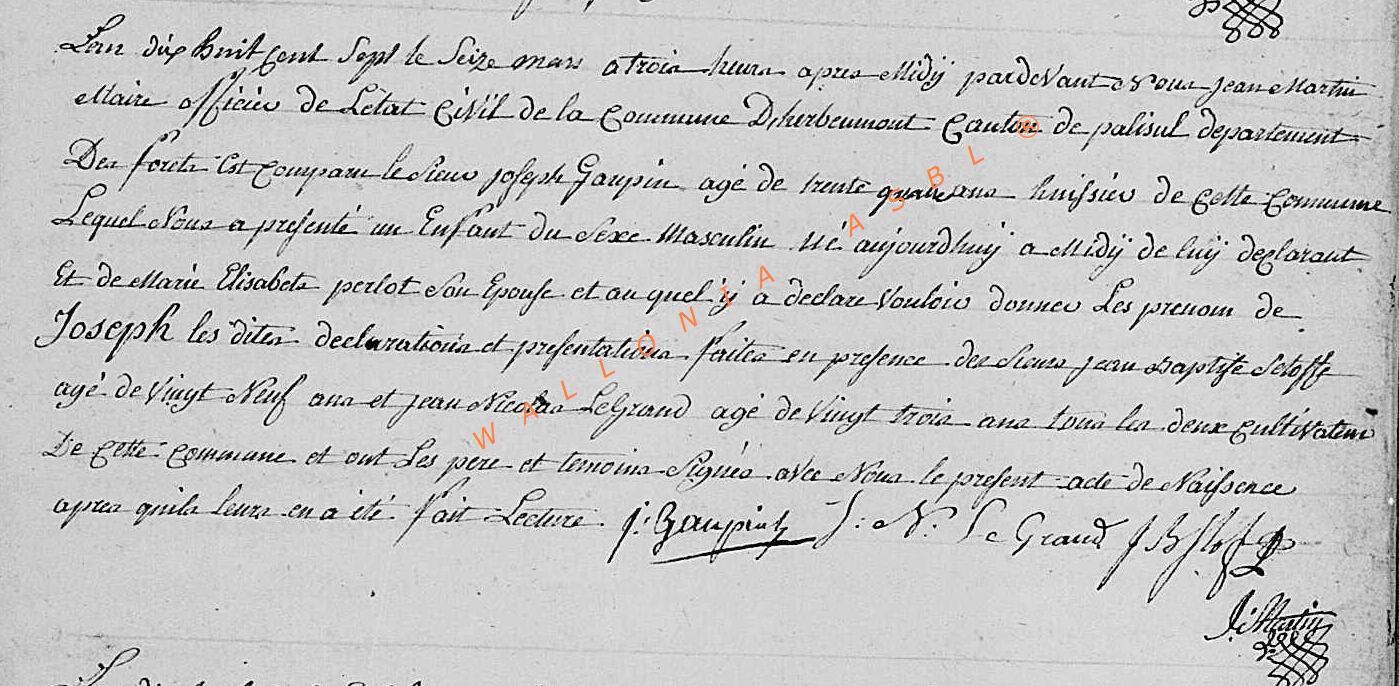 Lan dix huit cent Sept le Seize mars a trois heurs apres Midÿ pardevant Nous Jean Martin
Maire officier de Létat Civil de la Commune Dherbeumont Canton de palisul departement
Des forets Est comparu le Sieur Joseph Gaupin agé de trente quatre ans huissier de Cette Commune
Lequel Nous a présenté un Enfant du Sexe Masculin né aujourdhuÿ a Midÿ de luÿ declarant
Et de Marie Elisabets perlot Son Epouse et au quel ÿ a declare vouloir donner Les prenom de
Joseph les dites declarations et présentations faites en presence des Sieurs Jean Baptiste Seloffe
agé de Vingt Neuf ans et Jean Nicolas LeGrand agé de Vingt trois ans tous les deux Cultivateur
De Cette Commune et ont Les pere et temoins Signés avec Nous le present acte de Naissence
apres quils leurs en a été fait Lecture. J: Gaupin J: N: Le Grand J B Sloff
J: Martin
WALLONIA ASBL ®